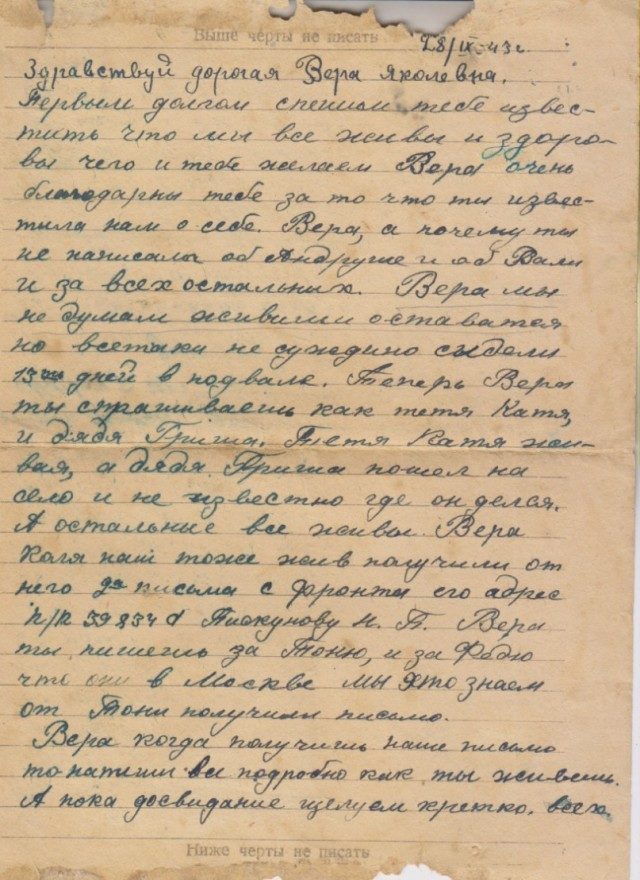 Выше черты не писать
28/IX-43г
Здравствуй дорогая Вера Яколевна.
Первым долгом спешим тебе извес-
тить что мы все живы и здоро-
вы чего и тебе желаем Вера очень
благодарны тебе за то что ты извес-
тила нам о себе. Вера, а почему ты
не написала об Андруше и об Вали
и за всех остальных. Вера мы
не думали живыми оставатся
но всетаки не суждино сыдели
13 дней в подвале. Теперь Вера
ты спрашиваешь как тетя Катя,
и дядя Гриша. Тетя Катя жи-
вая, а дядя Гриша пошел на
село и не известно где он делся.
А остальные все живы. Вера
Коля наш тоже жив получили от
него письма с фронта его адрес
п/п 39834 Пискунову Н. П. Вера
ты пишешь за Тоню, и за Федю
что они в Москве мы это знаем
от Тони получили письмо.
Вера когда получишь наше письмо
то напиши все подробно как ты живешь.
А пока досвидание целуем крепко. всех.
Ниже черты не писать